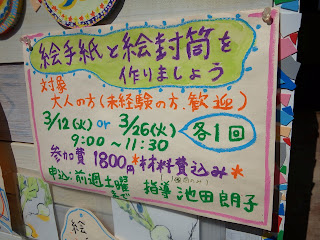 絵手紙と絵封筒を
作りましょう
対象
大人の方(未経験の方、歓迎)
3/12(火) or 3/26(火) 各1回
9:00~11:30
参加費 1800円*材料費込み*
申込:前週土曜まで 指導 池田朗子
絵